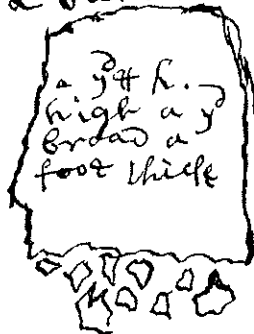 a yd & h.
high a yd
broad a
foot thick